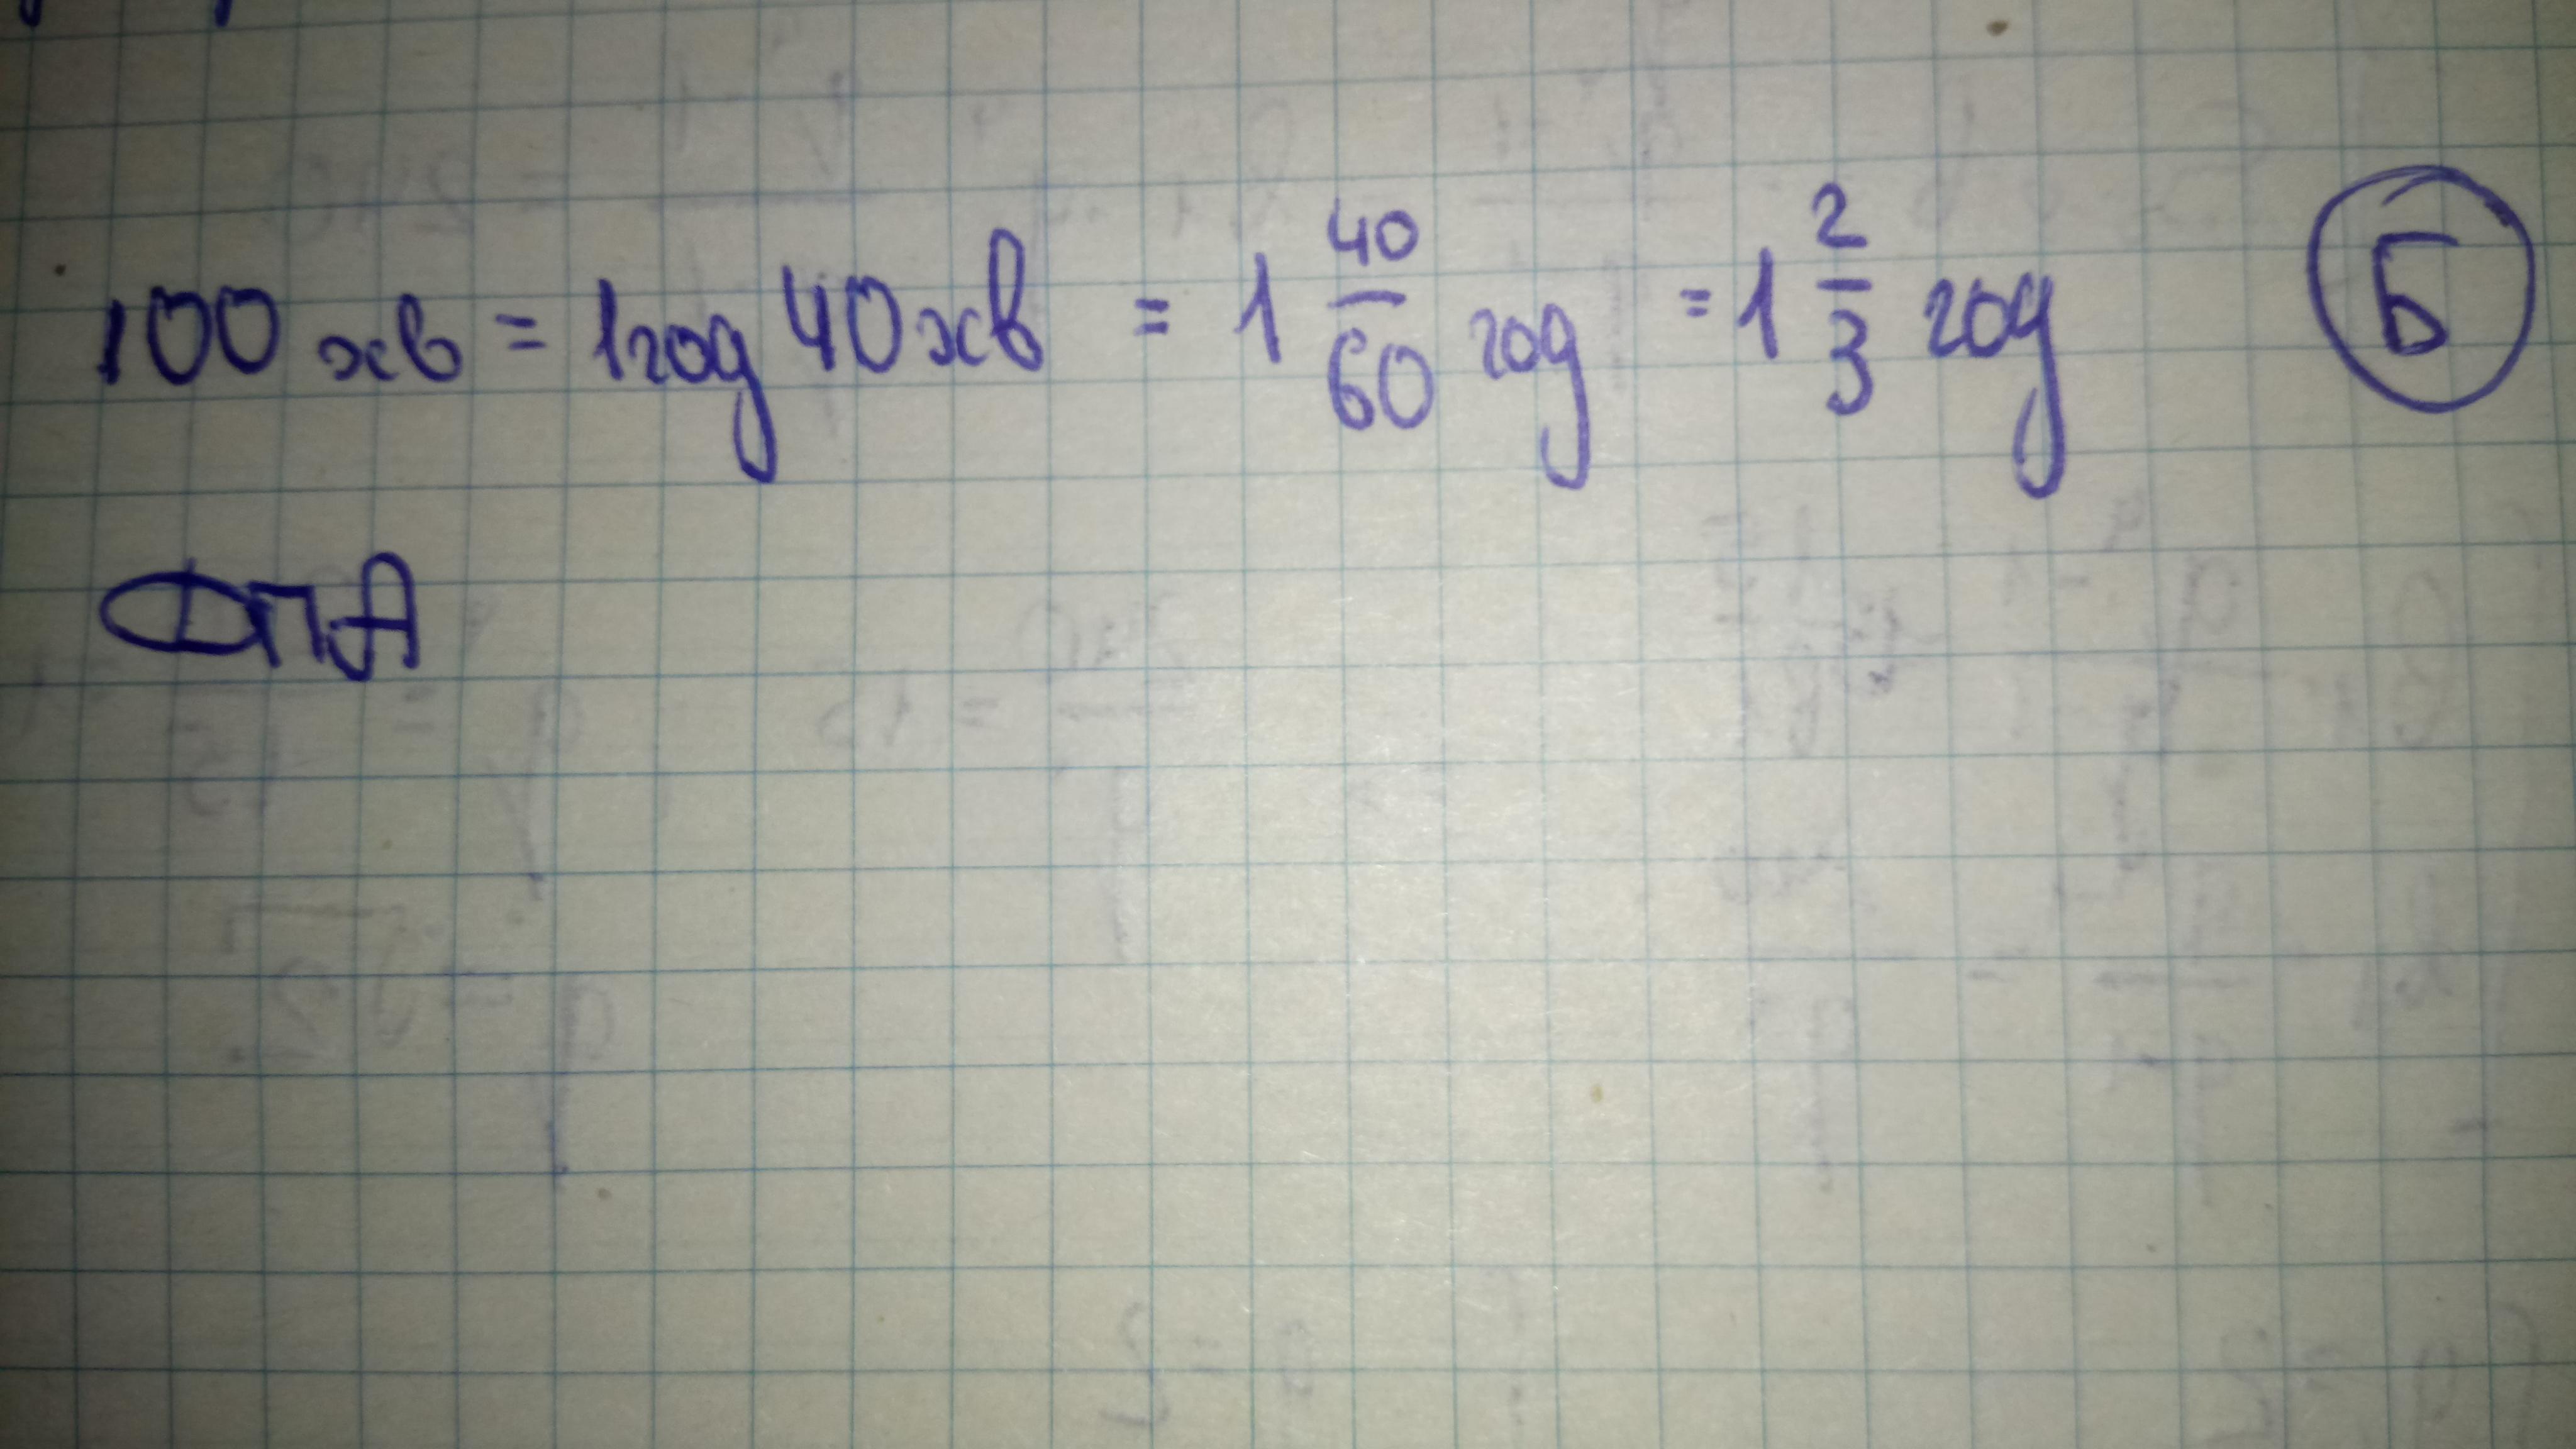 100 хв = 1год 40хв = 1 40/60 год = 1 2/3 год Б
ФПА